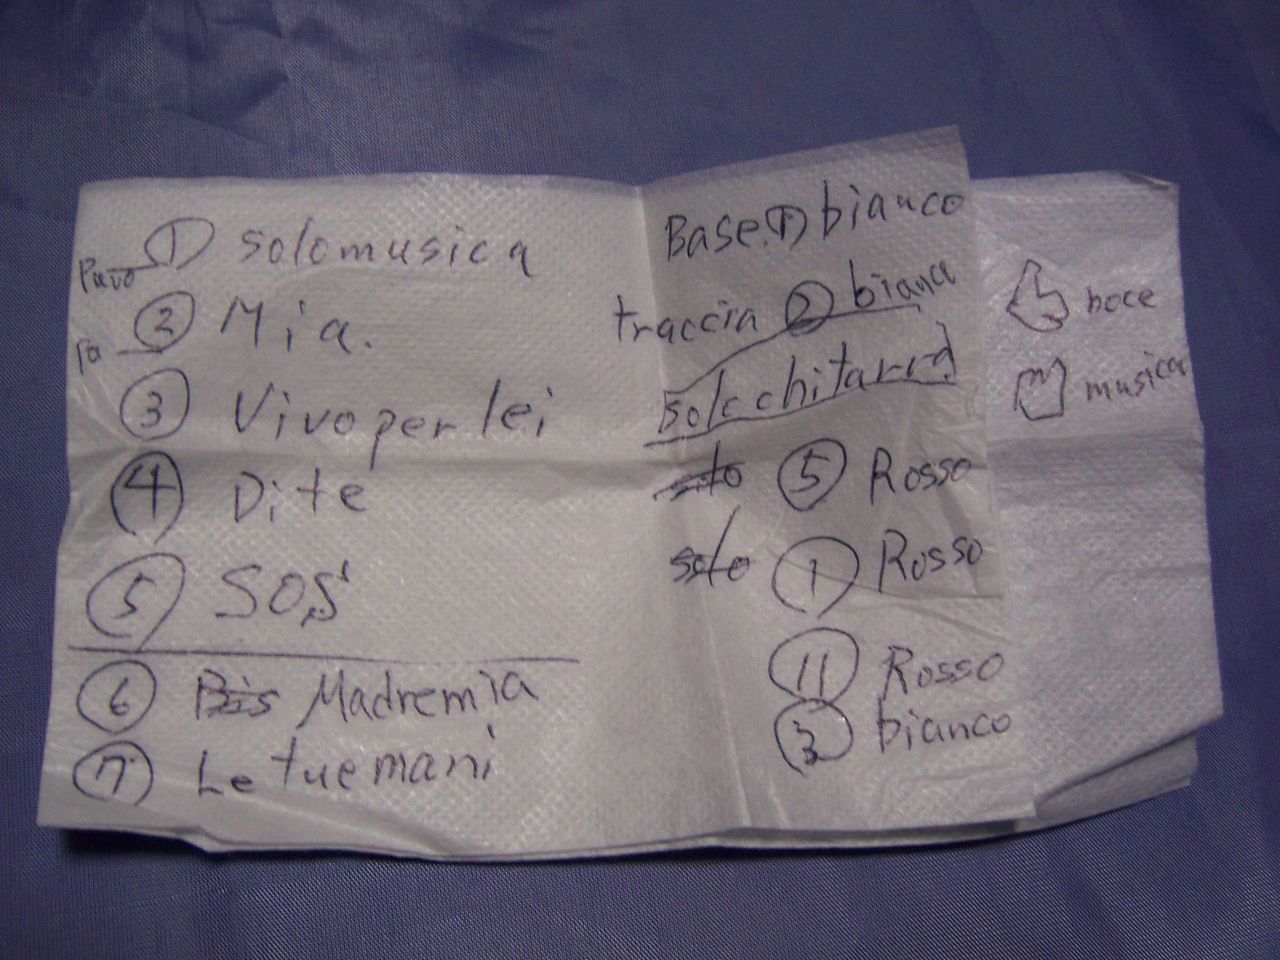 ① solo musica
② Mia.
③ Vivo per lei
④ Dite
⑤ SOS
⑥ Bis Madre mia
⑦ Le tue mani
Base. ① bianco
traccia ② bianca
solo chitarra
⑤ Rosso
solo ① Rosso
⑪ Rosso
③ bianco
musica